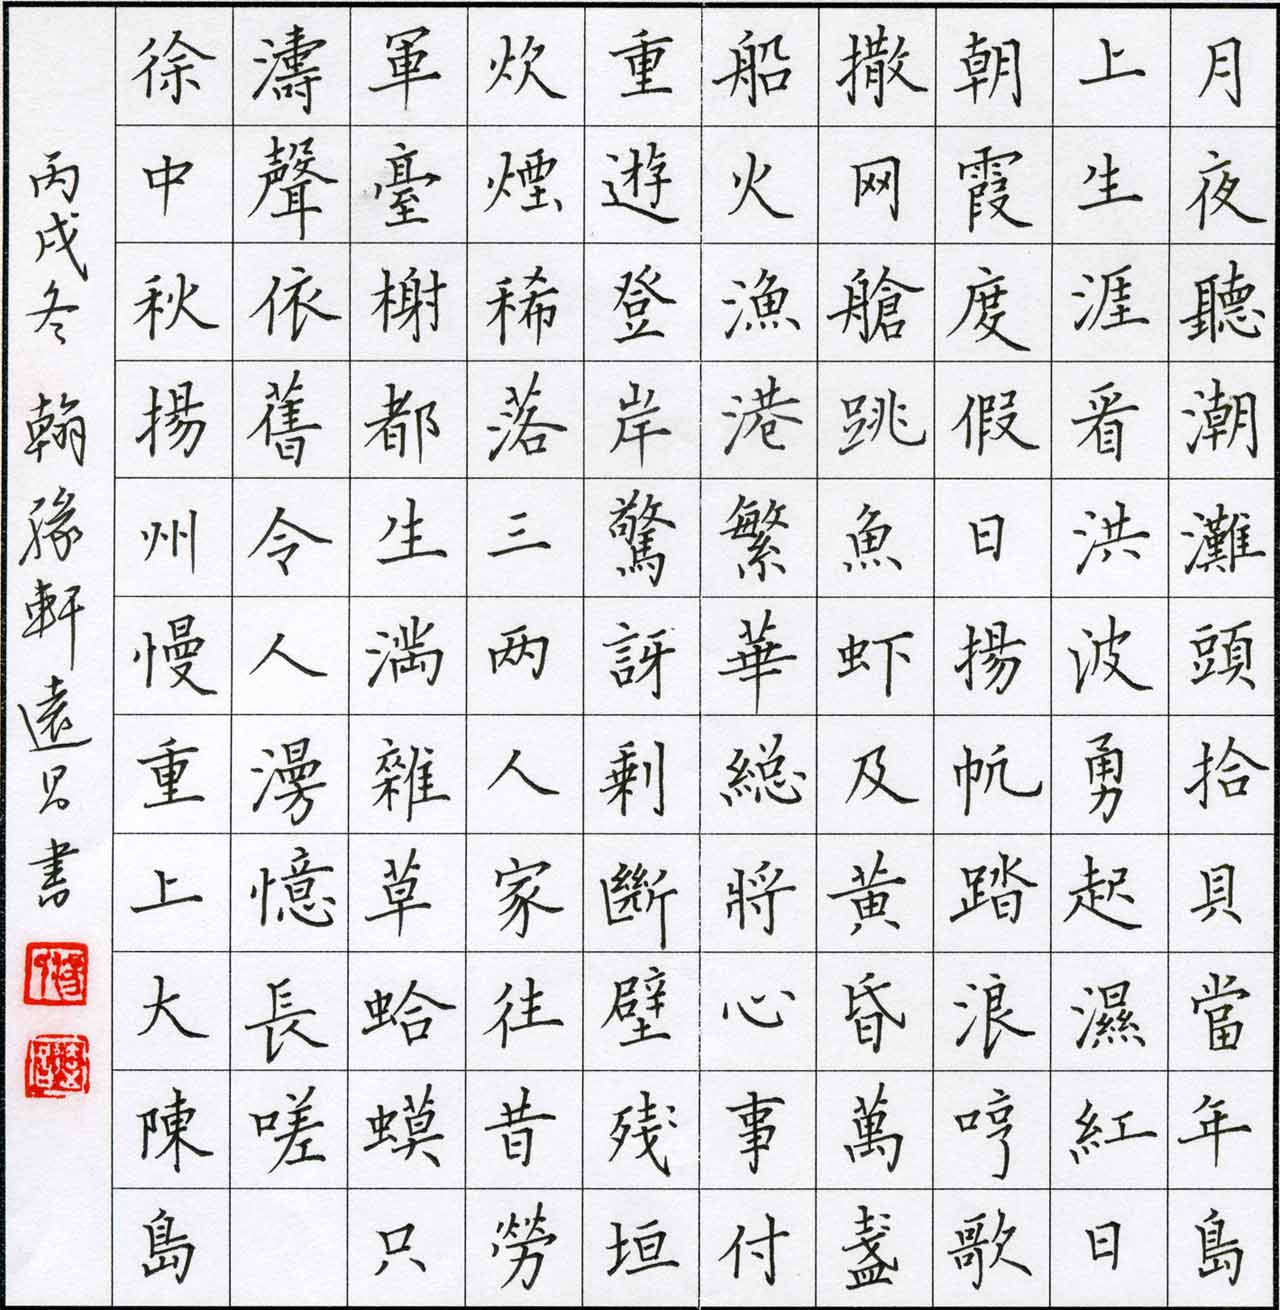 月夜聽潮灘頭拾貝當年島
上生涯看洪波勇起濕紅日
朝霞度假日揚帆踏浪哼歌
撒网艙跳魚虾及黃昏萬盞
船火漁港繁華總將心事付
重遊登岸驚訝剩斷壁残垣
炊煙稀落三两人家往昔勞
軍臺榭都生滿雜草蛤蟆只
濤聲依舊令人漫憶長嗟
徐中秋揚州慢重上大陳島
丙戌冬翰緣軒遠昌書